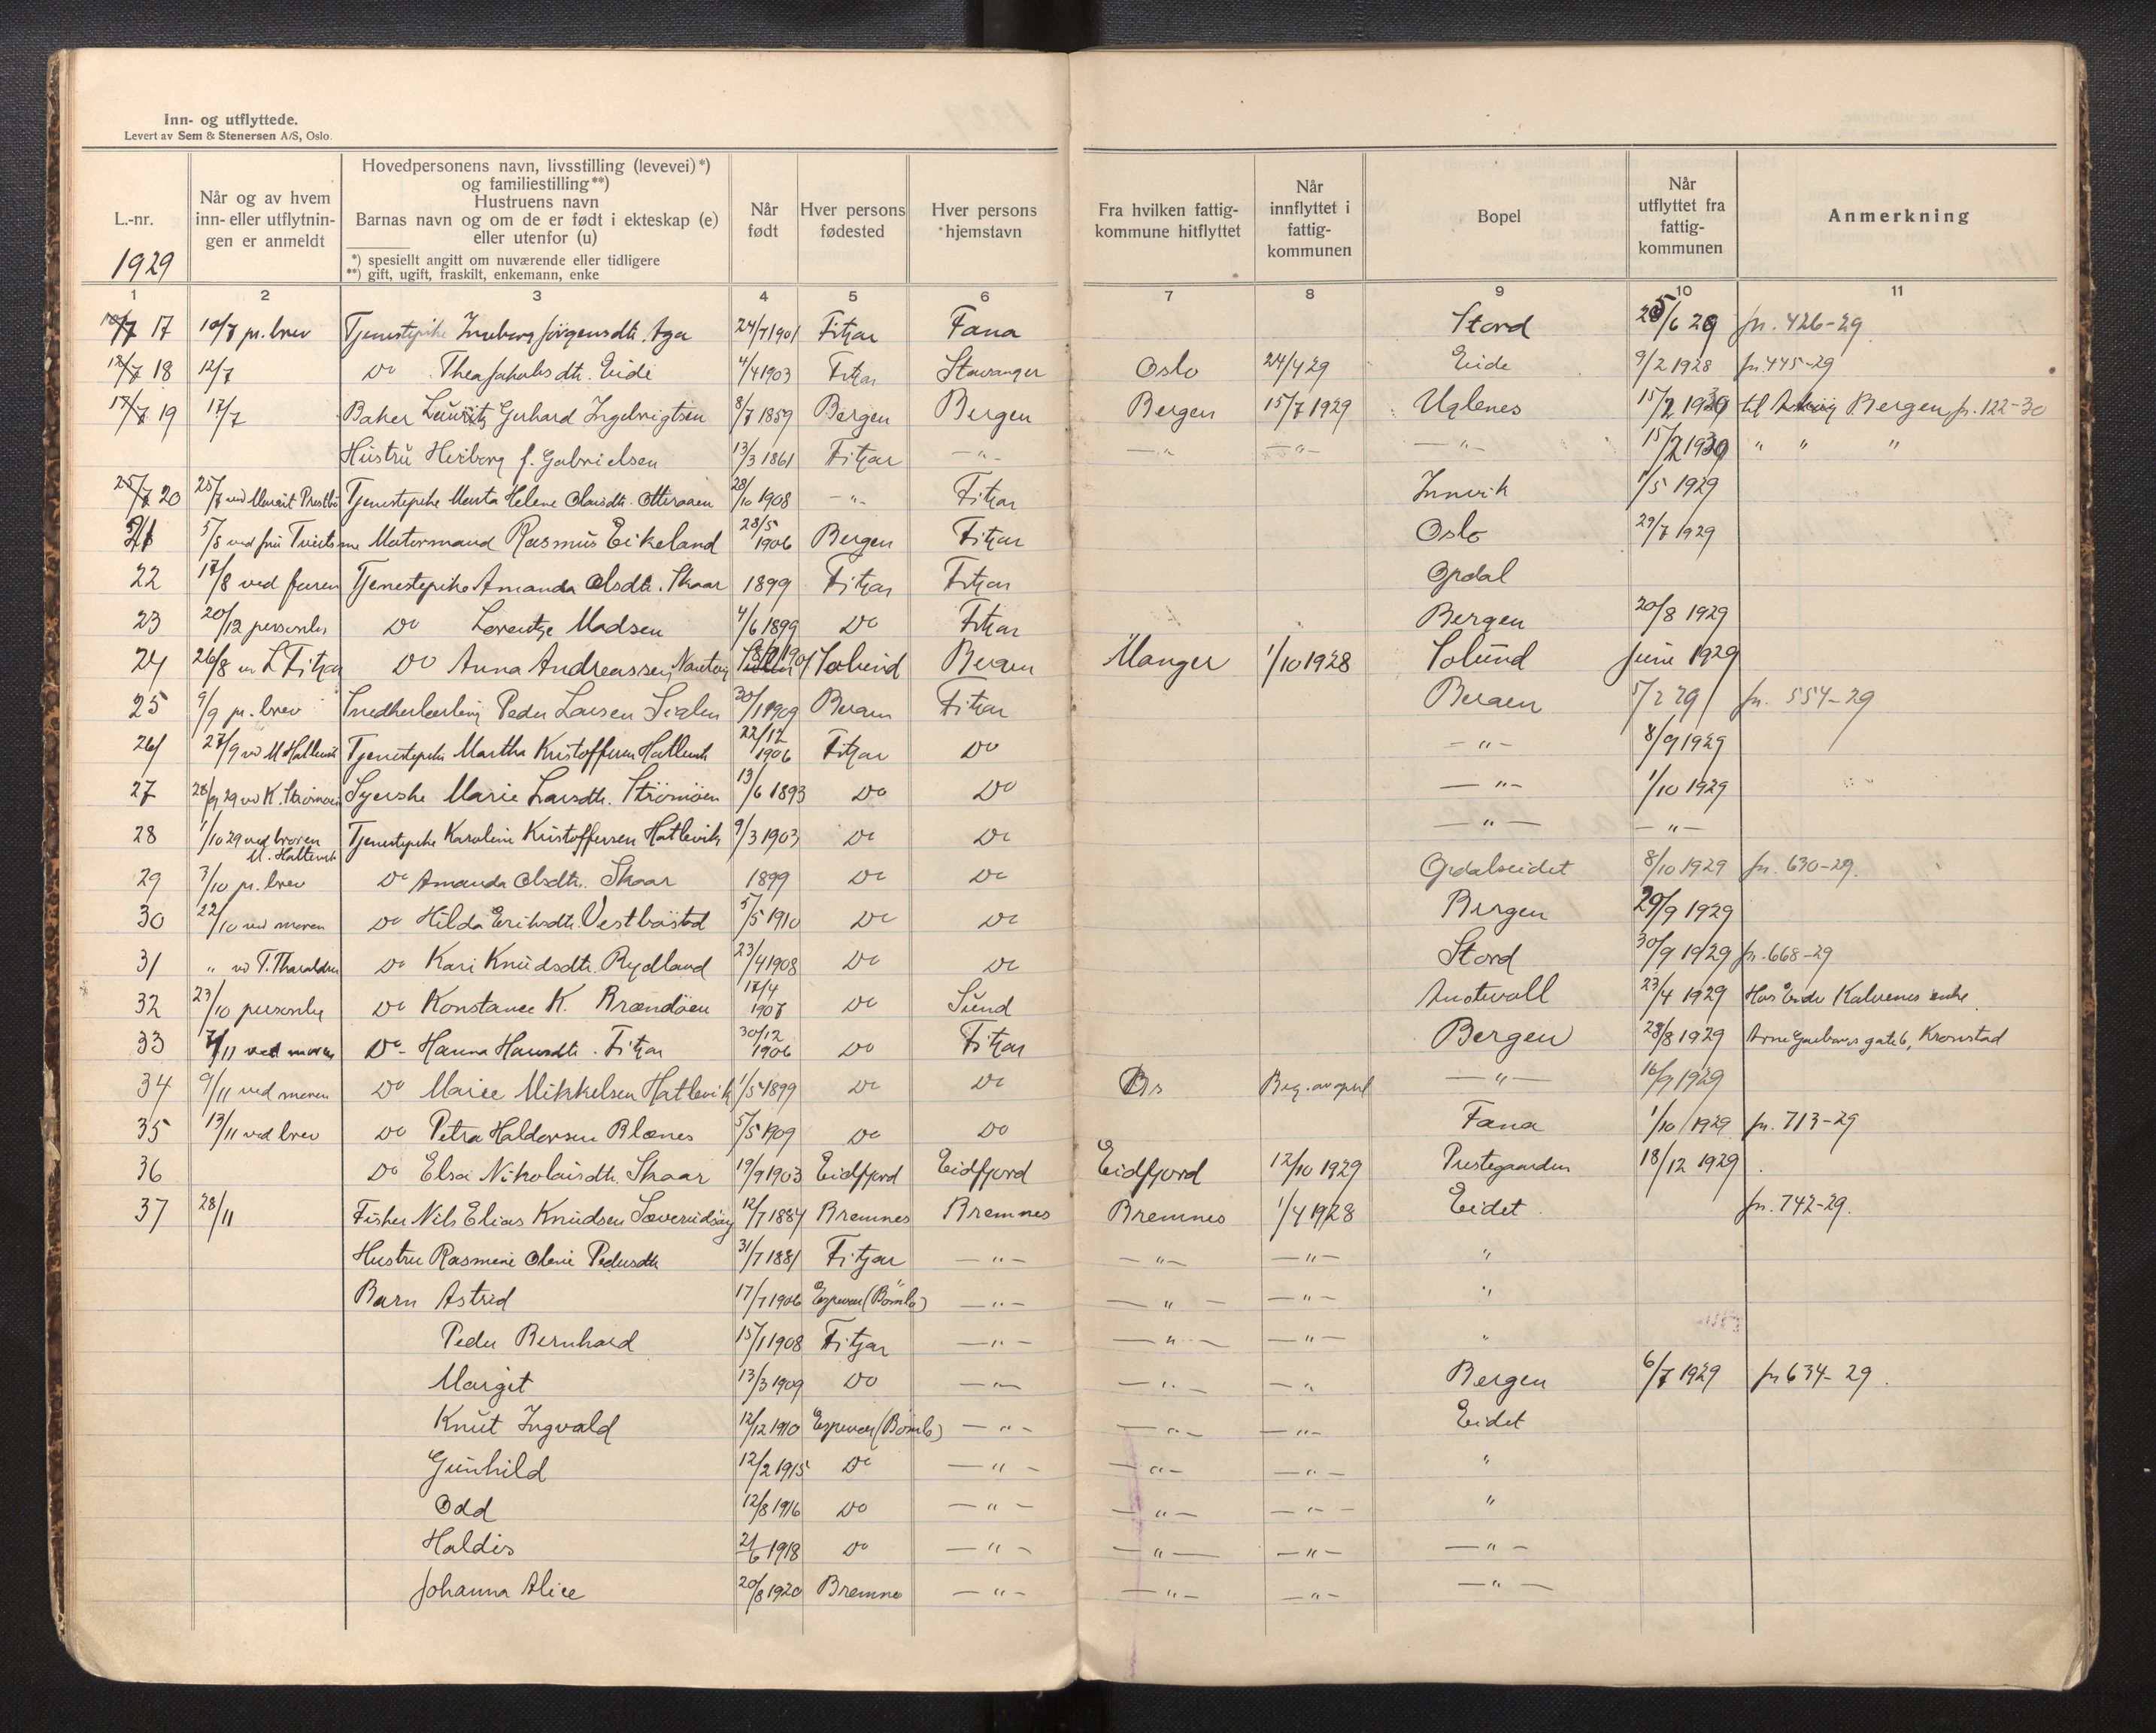 Inn- og utflyttede.
Levert av Sem & Stenersen A/S, Oslo.
L.-nr.
1929
Når og av hvem
inn- eller utflytnin-
gen er anmeldt
Hovedpersonens navn, livsstilling (levevei)*)
og familiestilling**)
Hustruens navn
Barnas navn og om de er født i ekteskap (e)
eller utenfor (u)
*) spesiellt angitt om nuværende eller tidligere
**) gift, ugift, fraskilt, enkemann, enke
Når
født
Hver persons
fødested
Hver persons
hjemstavn
Fra hvilken fattig-
kommune hitflyttet
Når
innflyttet i
fattig-
kommunen
Bopel
Når
utflyttet fra
fattig-
kommunen
Anmerkning
1 2 3 4 5 6 7 8 9 10 11
17 10/7 pr. brev Tjenestepike Ingeborg Jørgensdtr. Aga 24/7 1901 Fitjar Fana Stord 25/6 29 jn. 426-29
12/7 18 12/7 Do Thea Jakobsdtr. Eide 4/4 1903 Fitjar Stavanger Oslo 24/4 29 Eide 9/2 1928 jn. 445-29
17/7 19 17/7 Baker Lauritz Gerhard Ingebrigtsen 8/7 1859 Bergen Bergen Bergen 15/7 1929 Uglenes 15/2 1930 til Bergen jn. 122-30
Hustru Herborg f. Gabrielsen 13/3 1861 Fitjar -"- -"- -"- -"- 15/2 1930 " " "
25/7 20 25/7 ved Prestbø Tjenestepike Marta Helene Olavsdtr. Otteraaen 28/10 1908 -"- Fitjar Innvik 1/5 1929
21 5/8 ved fru Motormand Rasmus Eikeland 28/5 1906 Bergen Fitjar Oslo 29/7 1929
22 17/8 ved faren Tjenestepike Amanda Olsdtr. Skaar 1899 Fitjar Fitjar Opdal
23 20/12 personlig Do Lorentze Madsen 4/6 1899 Do Fitjar Bergen 20/8 1929
24 26/8 L Fitjar Do Anna Andreassen 1901 Solund Bergen Manger 1/10 1928 Solund Juni 1929
25 9/9 pr. brev Snedkerlærling Peder Larsen Siglen 30/1 1909 Bergen Fitjar Bergen 5/2 29 jn. 554-29
26 27/9 v/ M Hatlevik Tjenestepike Martha Kristoffersen Hatlevik 22/12 1906 Fitjar Do -"- 8/9 1929
27 28/9 29 v/ K. Strømøen Syerske Marie Larsdtr. Strömöen 13/6 1893 Do Do -"- 1/10 1929
28 1/10 29 ved broren M. Hatlevik Tjenestepike Karoline Kristoffersen Hatlevik 9/3 1903 Do Do -"- -"-
29 3/10 pr. brev Do Amanda Olsdtr. Skaar 1899 Do Do Opdalseidet 8/10 1929 jn. 630-29.
30 22/10 ved moren Do Hilda Eriksdtr. Vestbøstad 5/5 1910 Do Do Bergen 29/9 1929
31 " v/ T. Tharaldsen Do Kari Knudsdtr. Rydland 23/4 1908 Do Do Stord 30/9 1929 jn. 668-29
32 23/10 personlig Do Konstance K. Brandöen 17/4 1907 Do Sund Austevoll 23/4 1929 Hos Kalvenes enke
33 7/11 ved moren Do - Hanna Hansdtr. Fitjar 30/12 1906 Do Fitjar Bergen 28/8 1929 Arne Garborgs gate 6, Kronstad
34 9/11 ved moren Do Marie Mikkelsen Hatlevik 1/5 1899 Do Do Beg. av april -"- 16/9 1929
35 13/11 ved brev Do Petra Haldorsen Blænes 5/5 1909 Do Do Fana 1/10 1929 jn. 713-29
36 Do Elsa Nikolaisdtr. Skaar 19/9 1903 Eidfjord Eidfjord Eidfjord 12/10 1929 Prestegaarden 18/12 1929
37 28/11 Fisker Nils Elias Knudsen Sæverudsøy 12/7 1884 Bremnes Bremnes Bremnes 1/4 1928 Eidet jn. 742-29.
Hustru Rasmine Oline Pedersdtr 31/7 1881 Fitjar -"- -"- -"- "
Barn Astrid 17/7 1906 Espevær (Bömlo) -"- -"- -"- "
Peder Bernhard 15/1 1908 Fitjar -"- -"- -"- "
Margit 13/3 1909 Do -"- -"- -"- Bergen 6/7 1929 jn 634-29.
Knut Ingvald 12/12 1910 Espevær (Bömlo) -"- -"- -"- Eidet
Gunhild 12/2 1915 Do -"- -"- -"- "
Odd 12/8 1916 Do -"- -"- -"- "
Haldis 21/6 1918 Do -"- -"- -"- -"-
Johanna Alice 20/8 1920 Bremnes -"- -"- -"- -"-